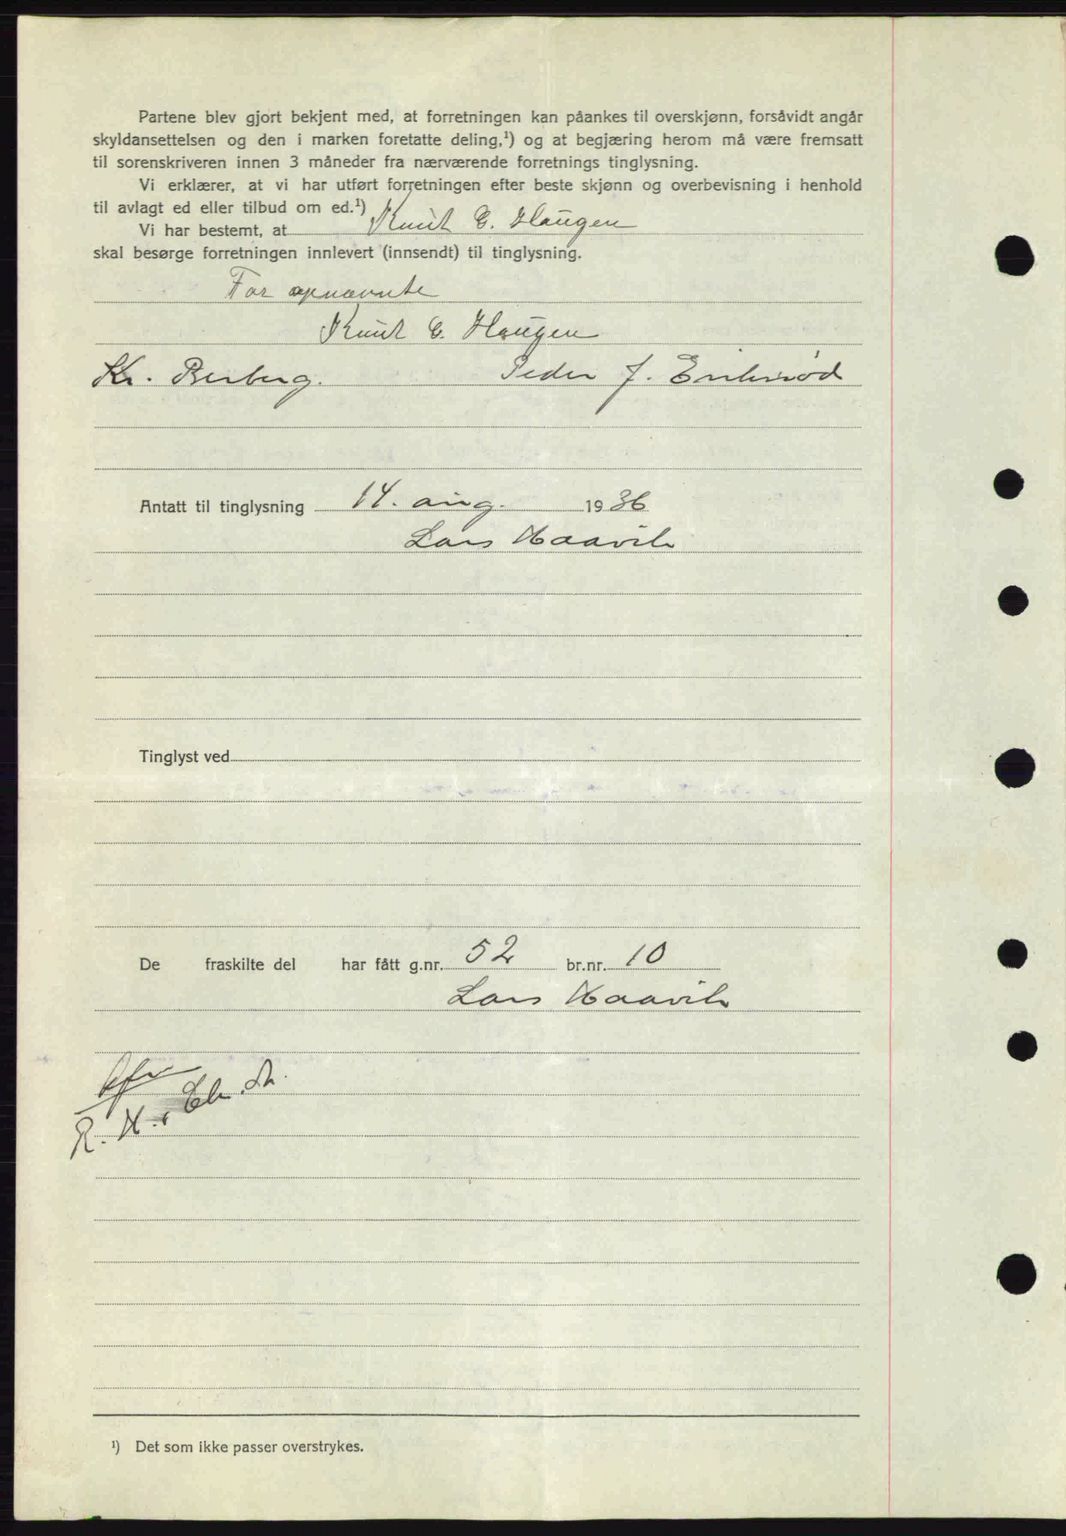 Partene blev gjort bekjent med, at forretningen kan påankes til overskjønn, forsåvidt angår
skyldansettelsen og den i marken foretatte deling,¹) og at begjæring herom må være fremsatt
til sorenskriveren innen 3 måneder fra nærværende forretnings tinglysning.
Vi erklærer, at vi har utført forretningen efter beste skjønn og overbevisning i henhold
til avlagt ed eller tilbud om ed.¹)
Vi har bestemt, at Knut E. Haugen
skal besørge forretningen innlevert (innsendt) til tinglysning.
For opnævnte
Knut E. Haugen
Kr. Berberg. Peder J. Eriksrød
Antatt til tinglysning 14. aug. 1936
Lars Haavik
Tinglyst ved
De fraskilte del har fått g.nr. 52 br.nr. 10
Lars Haavik
R. H.
¹) Det som ikke passer overstrykes.